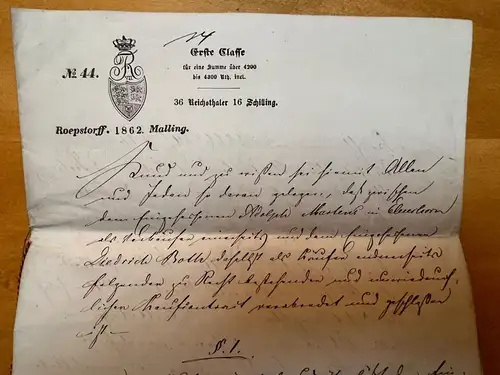 Erste Classe
für eine Summe über 4200
bis 4300 Rth. incl.
№ 44.
36 Reichsthaler 16 Schilling.
Roepstorff. 1862. Malling.
Kund und zu wißen sei hiemit Allen
und Jeden so daran gelegen, daß zwischen
dem Eingesessenen Martens in
als Verkäufer einerseits und dem Eingesessenen
Diedrich Bolte, daselbst als Käufer anderseits
folgender zu Recht bestehender und unwiederruf-
licher Kaufcontract verabredet und geschloßen
ist.
§. 1.